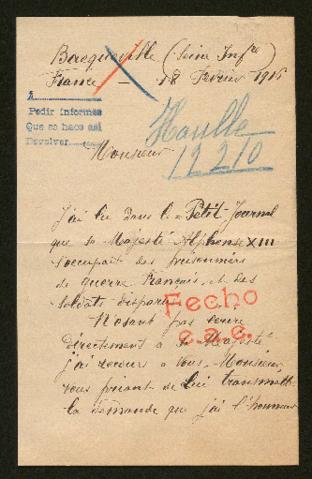 Bacqueville (Seine Infre)
France - 18 Février 1916
A
Pedir informes
Que se hace así
Devolver
Haulle
12210
Monsieur
J'ai lu dans le "Petit-Journal
que sa Majesté Alphonse XIII
s'occupait des prisonniers
de guerre Français, et des
soldats disparus.
Fecho
e.a.c.
N'osant pas écrire
directement à Sa Majesté
j'ai recours à Vous, Monsieur
vous priant de Lui transmettre
la demande que j'ai l'honneur